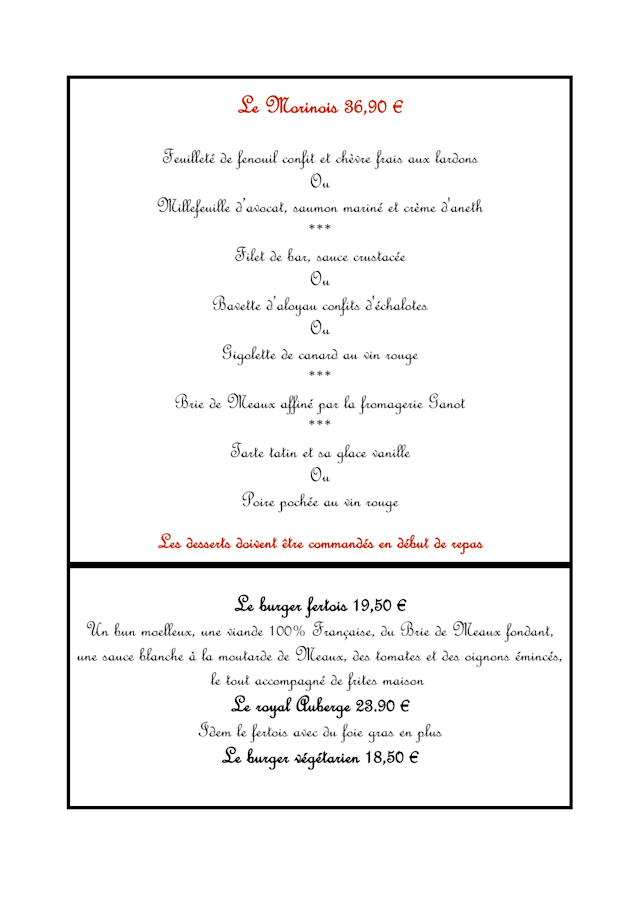 Le Morinois 36,90 €
Feuilleté de fenouil confit et chèvre frais aux lardons
Ou
Millefeuille d'avocat, saumon mariné et crème d'aneth
***
Filet de bar, sauce crustacée
Ou
Bavette d'aloyau confits d'échalotes
Ou
Gigolette de canard au vin rouge
***
Brie de Meaux affiné par la fromagerie Ganot
***
Tarte tatin et sa glace vanille
Ou
Poire pochée au vin rouge
Les desserts doivent être commandés en début de repas
Le burger fertois 19,50 €
Un bun moelleux, une viande 100% Française, du Brie de Meaux fondant,
une sauce blanche à la moutarde de Meaux, des tomates et des oignons émincés,
le tout accompagné de frites maison
Le royal Auberge 23.90 €
Idem le fertois avec du foie gras en plus
Le burger végétarien 18,50 €